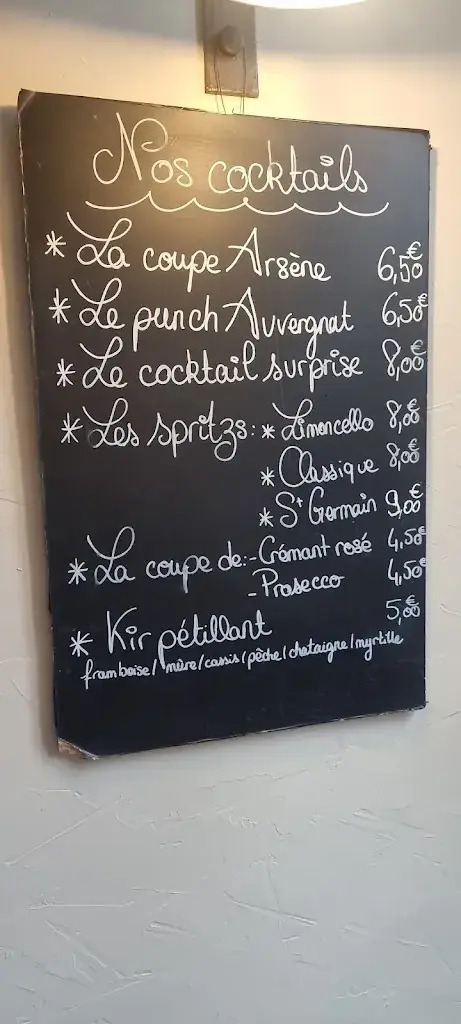 Nos cocktails
* La coupe Arsène 6,50€
* Le punch Auvergnat 6,50€
* Le cocktail surprise 8,00€
* Les spritzs: * Limoncello 8,00€
* Classique 8,00€
* St Germain 9,00€
* La coupe de: - Crémant rosé 4,50€
- Prosecco 4,50€
* Kir pétillant 5,00€
framboise/ mûre/cassis/pêche/chataigne/myrtille